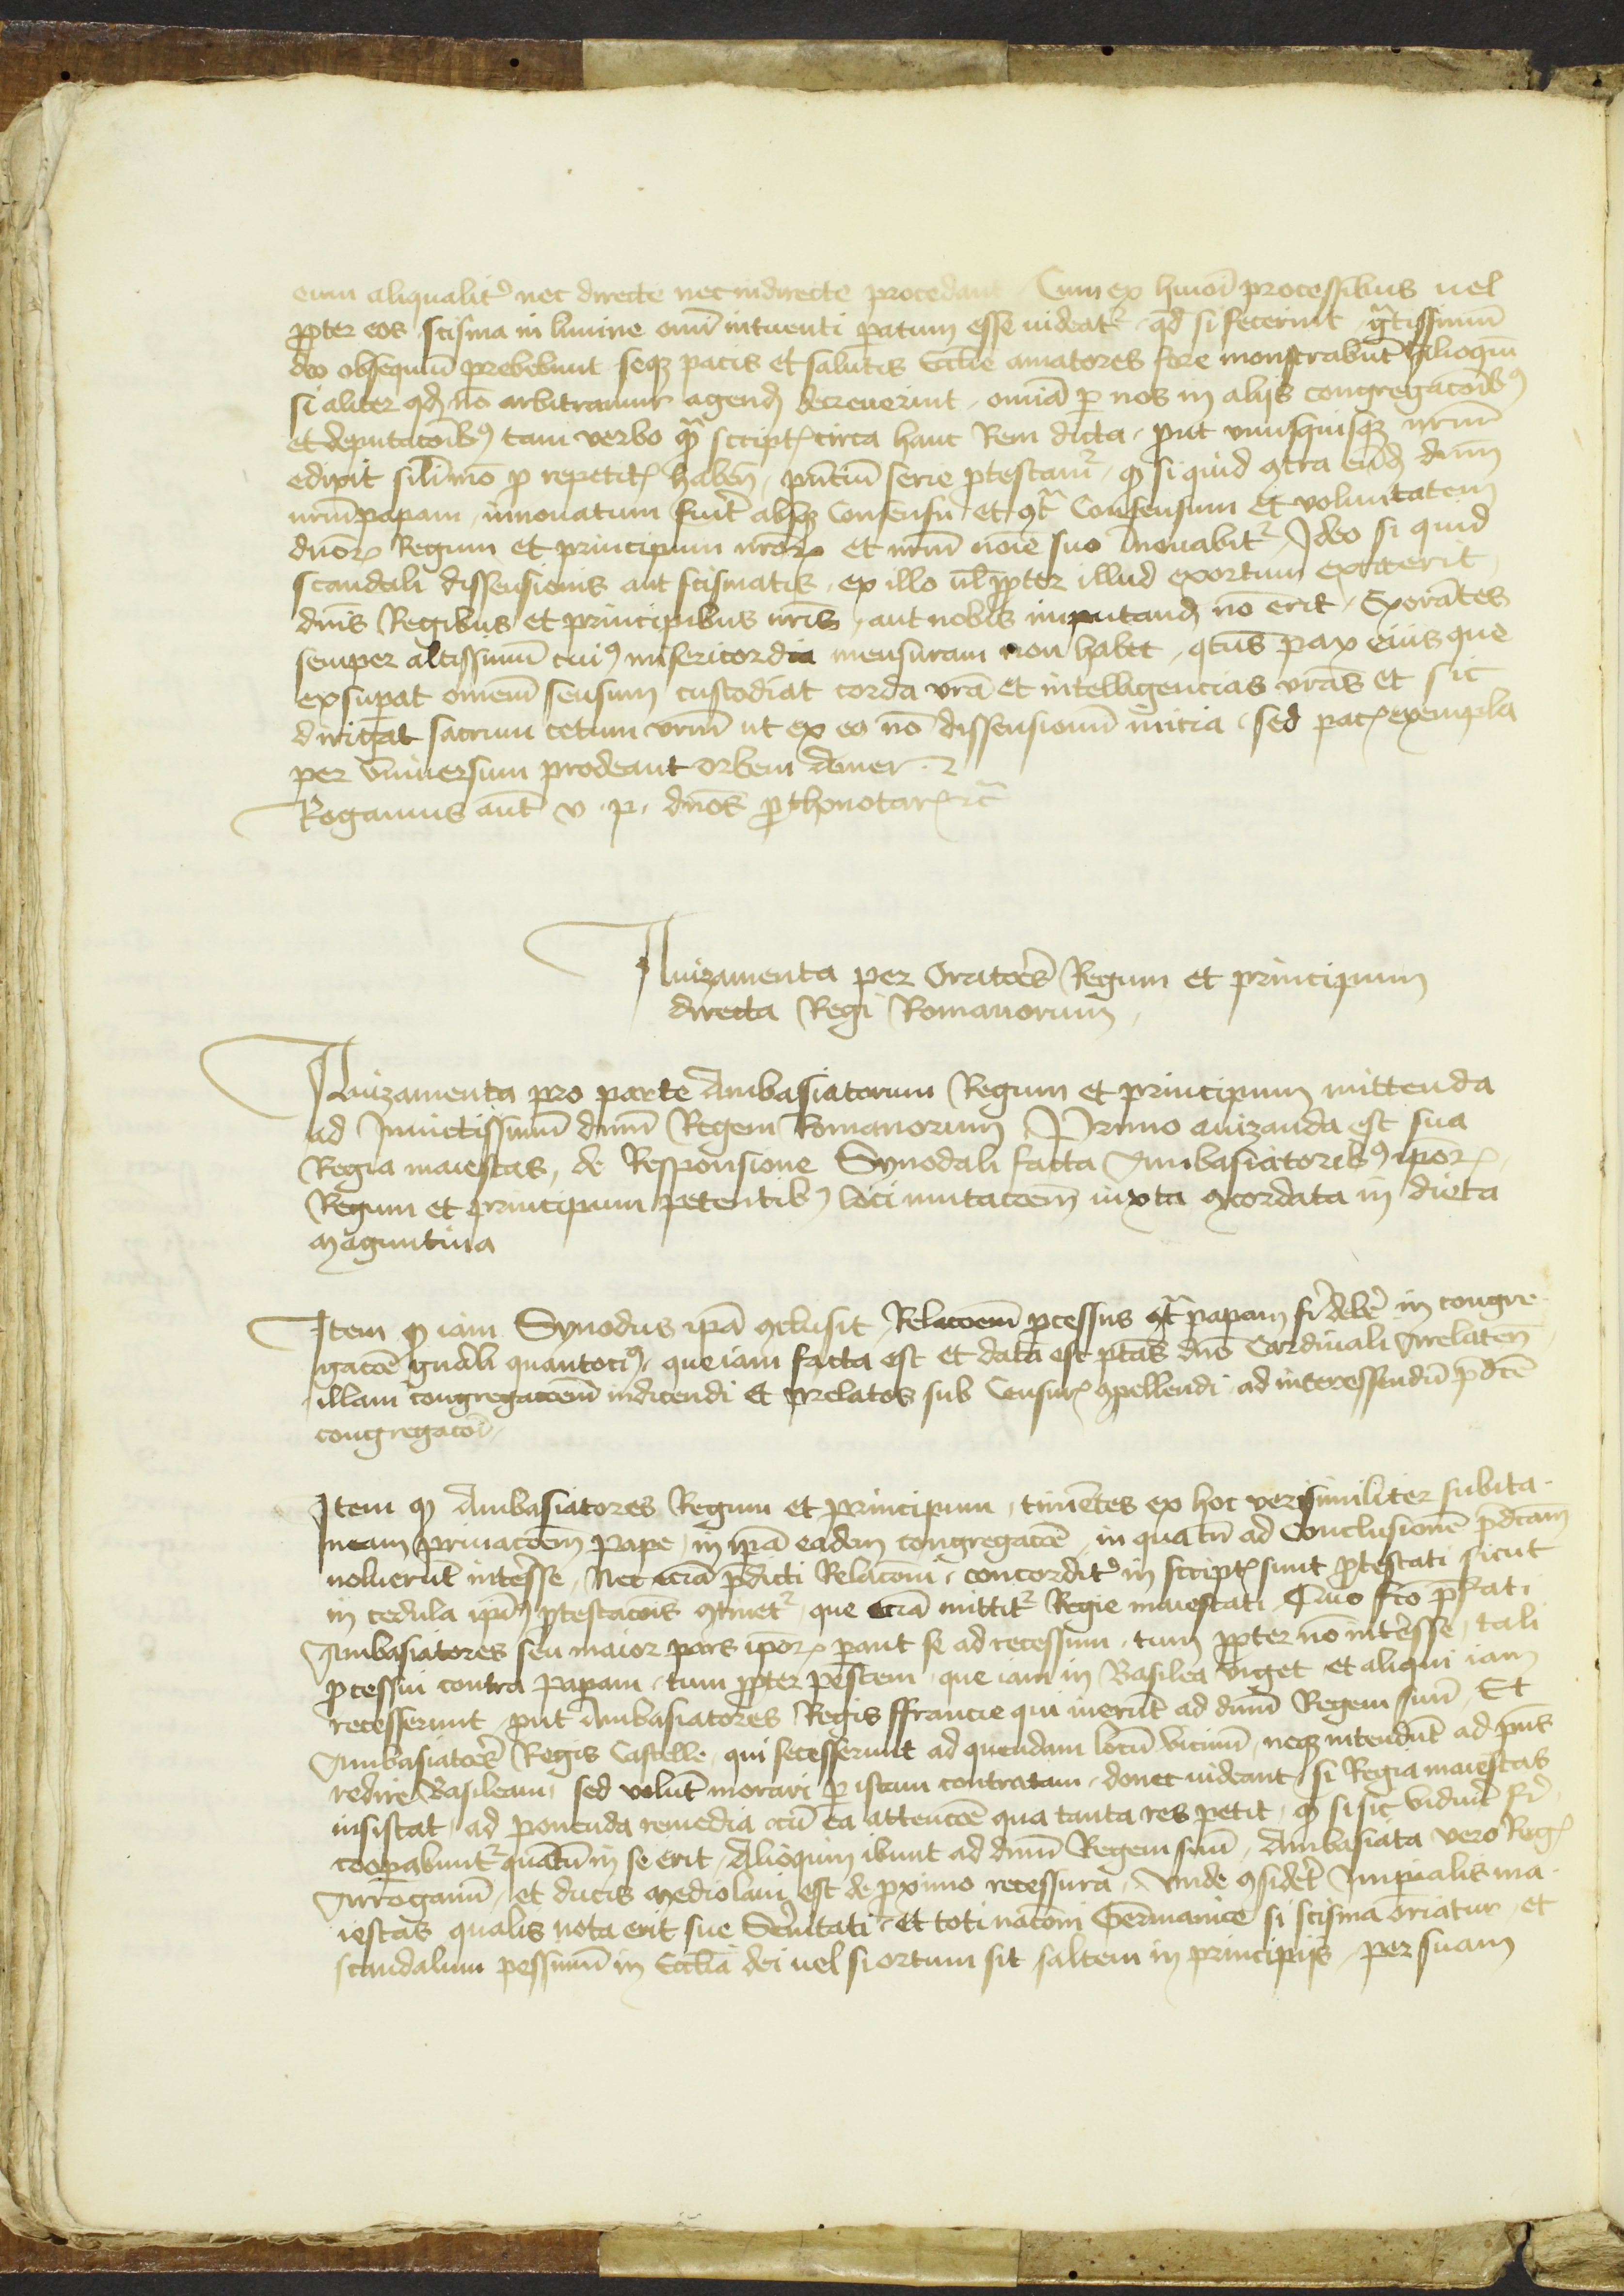 eum aliqualit᷑ nec directe nec indirecte procedant Cum ex hmoi̅ processibus uel
ꝓpter eos scisma in limine om̅i intuenti paratum esse uideat᷑ qd̅ si fecerint gͣtissimu̅
deo obsequiu̅ prebebunt seqꝫ pacis et salutis Eccl̅ie amatores fore monstrabu̅t Alioqui̅
si aliter qd̅ no̅ arbitramur agend̅ decreuerint om̅ia ꝑ nos in alijs congregaco̅ibꝰ
et deputaco̅ibꝰ tam verbo qͣ script̅ circa hanc Rem dicta ꝓut vnusquisqꝫ nr̅m
edixit silimo̅ ꝓ repetit̅ habe̅n pn̅ciu̅ serie ꝓtestam᷑ ꝙ si quid ꝯtra eu̅d̅ dn̅m
nr̅m papam innouatum fuit̅ absqꝫ Consensu et ꝯtͣ Consensum et voluntatem
dn̅oꝝ Regum et principum nr̅oꝝ et nr̅m no̅ie suo Inouabit᷑ Ideo si quid
scandali dissensionis aut scismatis ex illo ul̅ ꝓpter illud exortum extiterit
dn̅is Regibus et principibus nr̅is aut nobis imputand̅ no̅ erit Exora̅tes
semper altissimu̅ cuiꝰ misericordia mensuram non habet qtn̅s pax eius que
exsuꝑat omnem̅ sensum custodiat corda vr̅a et intelligencias vr̅as et sic
dirigat sacrum cetum vr̅m ut ex eo no̅ dissensionu̅ inicia sed pac̅ exempla
per vniuersum prodeant orbem Amen
Rogamus aut̅ v p dn̅os ꝓthonotar̅ ꝛc̅
Auizamenta per Oratore̅s Regum et principum
directa Regi Romanorum
Auizamenta pro parte Ambasiatorum Regum et principum mittenda
ad Inuictissimu̅ dn̅m Regem Romanorum Primo auizanda est sua
Regia maiestas de Responsione Synodali facta Ambasiatoribꝰ ip̅oꝝ
Regum et principum petentibꝰ loci mutacoe̅m iuxta ꝯcordata in dieta
Maguntina
Item ꝙ iam Synodus ip̅a ꝯclusit Relacoe̅m ꝓcessus ꝯtͣ papam fi̅ debe̅ in congre
gacoe̅ gn̅ali quantociꝰ que iam facta est et data est ptas̅ dn̅o Cardinali Arelaten̅
illam congregacoe̅m indicendi et prelatos sub Censur̅ ꝯpellendi ad interessendu̅ p̅dc̅e
congregaco̅i
Item ꝙ Ambasiatores Regum et principum time̅tes ex hoc verisimiliter subita
neam priuacoe̅m Pape in ip̅a eadem congregacoe̅ in qua tn̅ ad Conclusione̅ p̅dc̅am
uoluerut̅ inte̅sse Nec ecia̅ p̅dicti Relaco̅ni concordit᷑ in script̅ sunt ꝓtestati sicut
in cedula ipiꝰ ꝓtestaco̅is ꝯtinet᷑ que ecia̅ mittit᷑ Regie maiestati Quo fc̅o p̅fati
Ambasiatores seu maior pars ip̅oꝝ ꝑant se ad recessum tum ꝓpter no̅ inte̅sse tali
ꝓcessui contra Papam tum ꝓpter pestem que iam in Basilea viget et aliqui iam
recesserunt ꝓut Ambasiatores Regis ffrancie qui iuerut̅ ad dn̅m Regem suu̅ Et
Ambasiatore̅s Regis Castelle qui secesserunt ad quendam locu̅ vicinu̅ neqꝫ intendut̅ ad pn̅s
redire Basileam sed volut̅ morari ꝑ istam contratam donec uideant si Regia maiestas
insistat ad ponenda remedia cu̅ ea attencoe̅ qua tanta res petit ꝙ si sic videri̅t fi̅
cooꝑabunt᷑ quatu̅ in se erit Alioquin ibunt ad dn̅m Regem suu̅ Ambasiata vero Reg̅
Arrogonu̅ et ducis Mediolani est de ꝓximo recessura Unde ꝯside̅t Imperialis ma
iestas qualis nota erit sue Se̅nitati et toti naco̅ni Germanice si scisma oriatur et
scandalum pessimu̅ in Eccl̅ia dei uel si ortum sit saltem in principijs per suam